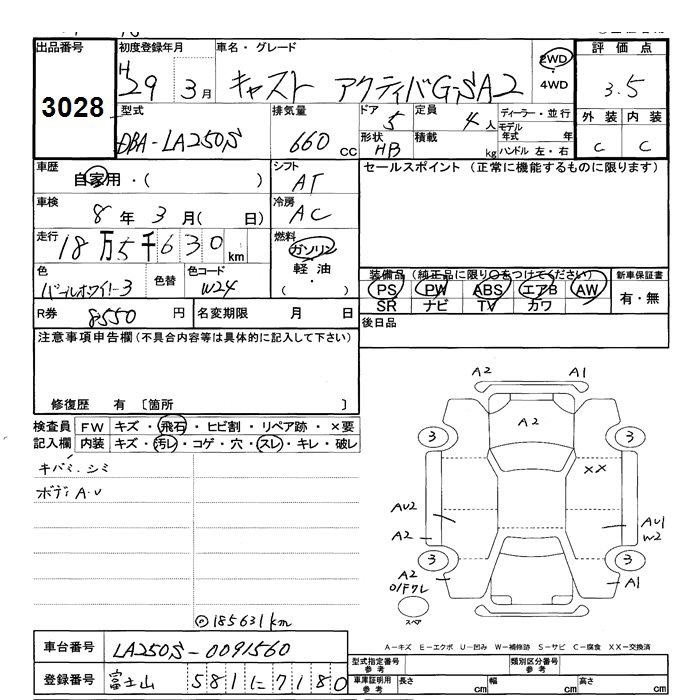 出品番号 初度登録年月 車名・グレード 2WD 評価点
3028 H29 3月 キャスト アクティバG.SA2 ・4WD 3.5
型式 排気量 ドア 定員 ディーラー・並行 外装 内装
DBA-LA250S 660cc 5 4人 モデル年式 年 C C
形状 積載 ハンドル 左・右
HB kg
車歴 シフト セールスポイント (正常に機能するものに限ります)
自家用・( ) AT
車検 冷房
8年3月( 日) AC
走行 燃料
18万5千630km ガソリン
軽油
( ・ )
色 色替 色コード 装備品 (純正品に限り○をつけてください) 新車保証書
パールホワイト3 W24 PS PW ABS エアB AW 有・無
SR ナビ TV カワ
R券 8550円 名変期限 月 日 後日品
注意事項申告欄 (不具合内容等は具体的に記入して下さい)
修復歴 有 〔箇所 〕
検査員 FW キズ・飛石・ヒビ割・リペア跡・×要
記入欄 内装 キズ・汚レ・コゲ・穴・スレ・キレ・破レ
キバミ.シミ
ボディA.U
A2 A1
A2
3 3
XX
AU2 AU1
A2 W2
3 3
A2 A1
01Fクレ
スペア
◎185631km
A-キズ E-エクボ U-凹み W-補修跡 S-サビ C-腐食 XX-交換済
車台番号 LA250S-0091560
登録番号 富士山 581に7180
型式指定番号 参考 類別区分番号 参考
車庫証明用 参考 長さ cm 幅 cm 高さ cm